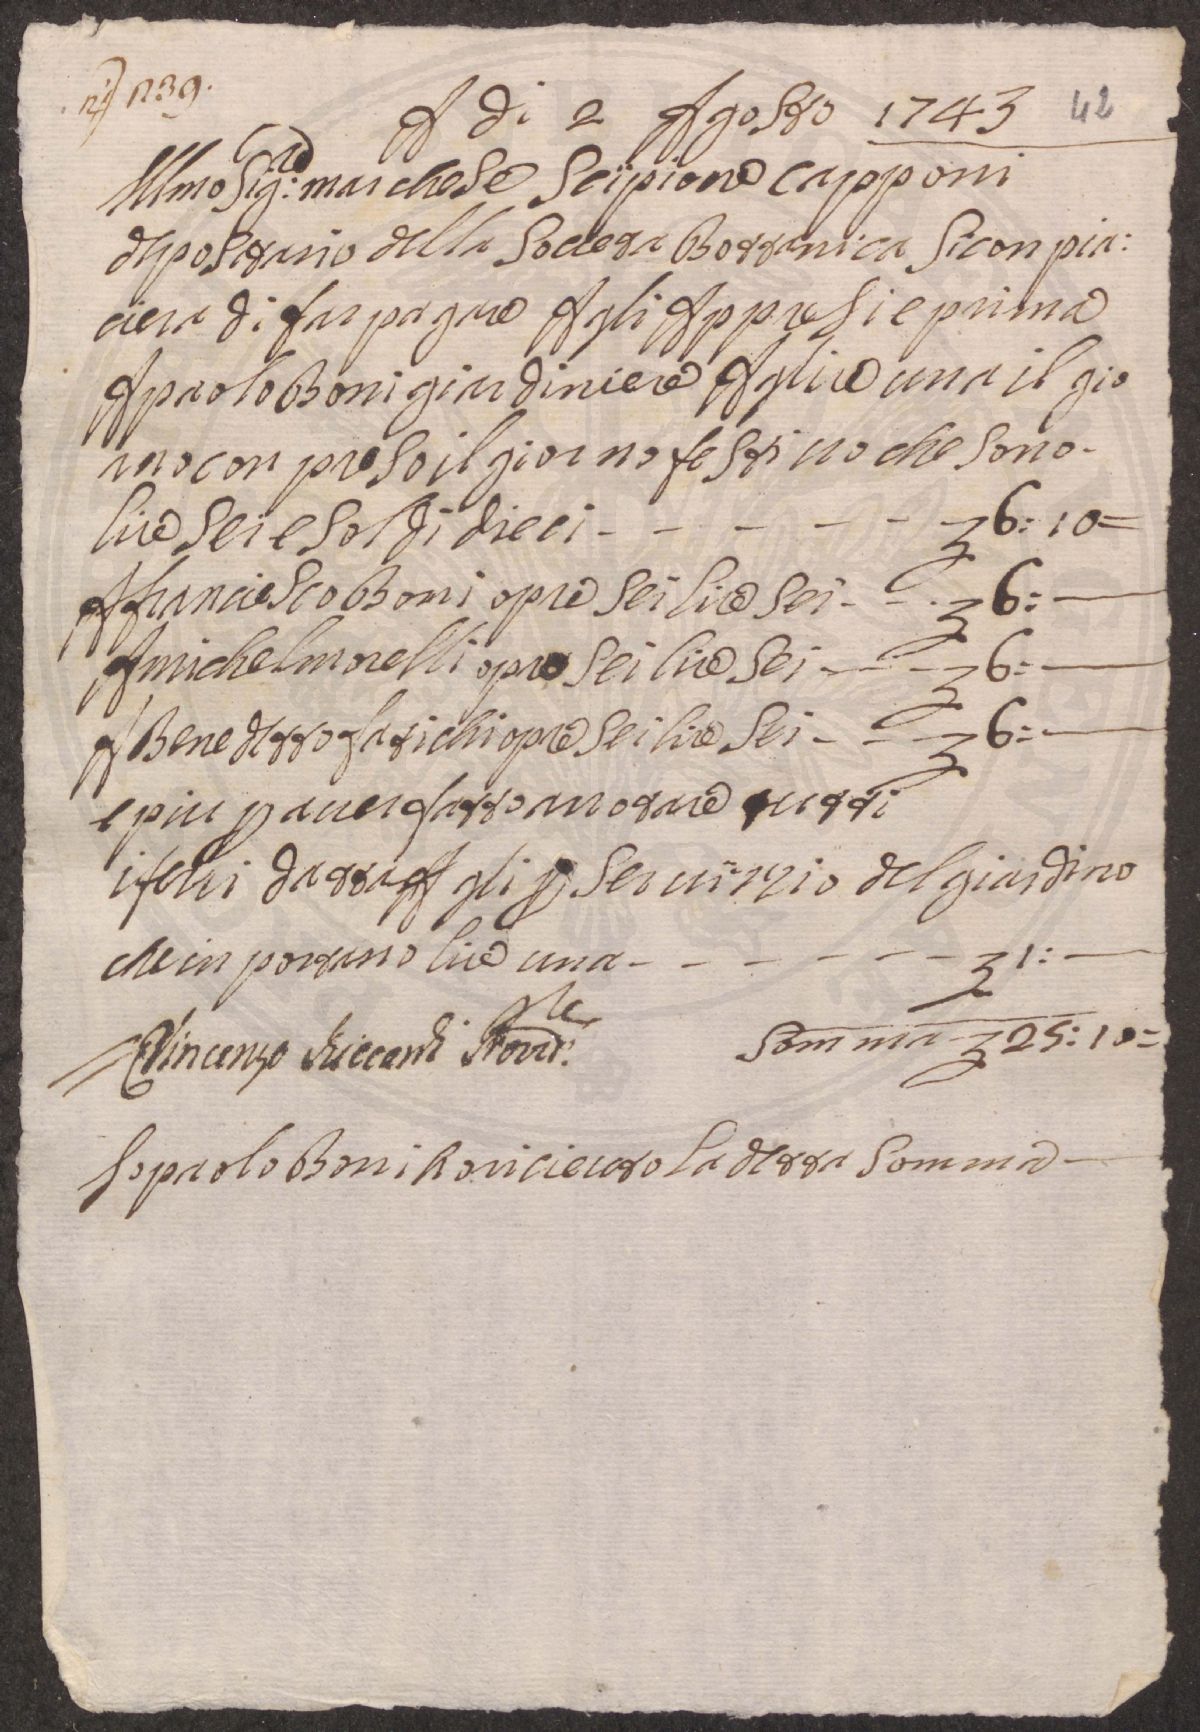 n 239.
A di 2 Agosto 1743 42
Illmo Sig:re marchese Scipione capponi
depositario della Societa Bottanica Si conpia:
ciera di far pagare A gli Appresi e prima
A paolo Boni giardiniere A lire una il gio
rno con preso il giorno festivo che sono-
lire Sei e Soldi dieci - - - - - - 6: 10=
A franciesco Boni opre Sei lire Sei - - 6: —
A michel morelli opre Sei lire Sei - - 6: —
A Benedetto fatichi opre Sei lire Sei - - 6: —
e piu p aver fatto arrotare tutti
i ferri da tta gli p Servizzio del giardino
che in portano lire una - - - - - 1: —
Somma 25: 10=
Vincenzo Riccardi Provre:
Io paolo Boni o ricieuto La detta Somma —